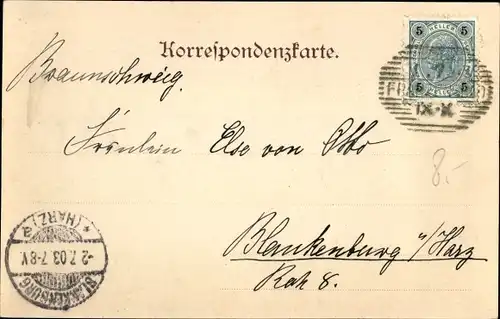 Korrespondenzkarte.
5 HELLER 5
5 HELLER 5
IX-X
Braunschweig.
Fräulein Else von Otto
8.-
Blankenburg a/Harz
BLANKENBURG
-2.7.03.7-8V.
*(HARZ)a